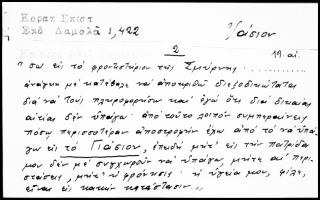 Κοραη Επιστ
Εκδ Δαμαλᾶ 1,422
Ἰάσιον
2
19 αἰ.
"σω εἰς τὸ φροντιστήριον τῆς Σμύρνης ......
ἀνάγκη μὲ κατέβαλε νὰ ἀποκριθῶ διεξοδικώτατα
διὰ νὰ τοὺς πληροφορήσω καὶ ἐγὼ ὅτι διὰ δικαίας
αἰτίας δὲν ὑπάγω· ἀπὸ τοῦτο λοιπὸν συμπεραίνεις
πόσην περισσοτέραν ἀποστροφὴν ἔχω ἀπὸ τὸ νὰ ὑπά-
γω εἰς τὸ Γιάσιον, ἐπειδὴ μήτ' εἰς τὴν πατρίδα
μου δὲν μὲ συγχωροῦν νὰ ὑπάγω, μήτε αἱ περι-
στάσεις, μήτ' ἡ φρόνησις· ἡ ὑγεία μου, φίλε,
εἶναι εἰς κακὴν κατάστασιν..."